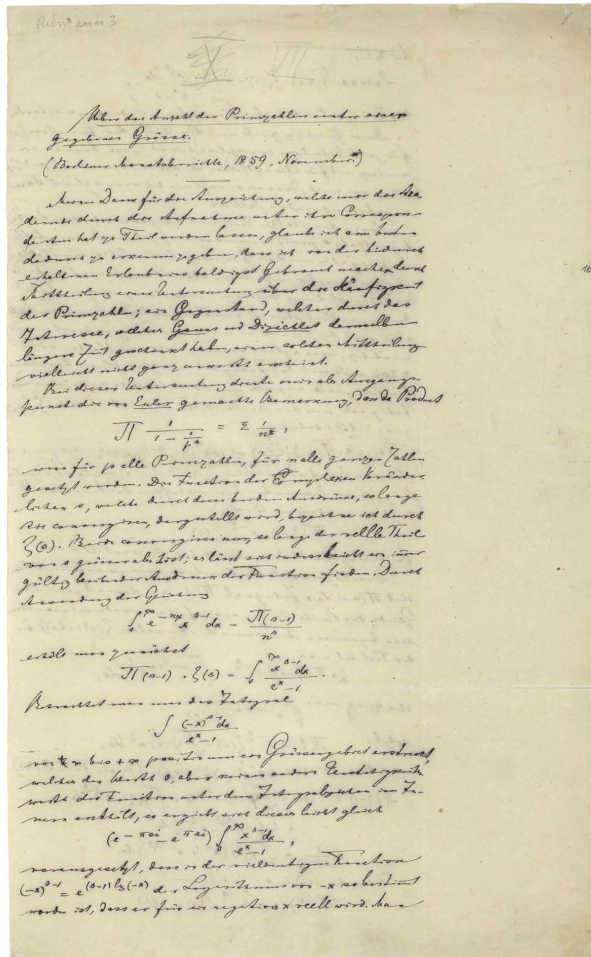 Riemann 3
Ueber die Anzahl der Primzahlen unter einer
gegebenen Grösse.
(Berliner Monatsberichte, 1859, November.)
Meinen Dank für die Auszeichnung, welche mir die Aka-
demie durch die Aufnahme unter ihre Correspon-
denten hat zu Theil werden lassen, glaube ich am besten
dadurch zu erkennen zu geben, dass ich von der hiedurch
erhaltenen Erlaubniss baldigst Gebrauch mache durch
Mittheilung einer Untersuchung über die Häufigkeit
der Primzahlen; ein Gegenstand, welcher durch das
Interesse, welches Gauss und Dirichlet demselben
längere Zeit geschenkt haben, einer solchen Mittheilung
vielleicht nicht ganz unwerth erscheint.
Bei dieser Untersuchung diente mir als Ausgangs-
punct die von Euler gemachte Bemerkung, dass das Product
∏ 1/(1 − 1/p^s) = Σ 1/n^s,
wenn für p alle Primzahlen, für n alle ganzen Zahlen
gesetzt werden. Die Function der complexen Veränder-
lichen s, welche durch diese beiden Ausdrücke, so lange
sie convergiren, dargestellt wird, bezeichne ich durch
ζ(s). Beide convergiren nur, so lange der reelle Theil
von s grösser als 1 ist; es lässt sich indess leicht ein immer
gültig bleibender Ausdruck der Function finden. Durch
Anwendung der Gleichung
∫₀^∞ e^−nx x^s−1 dx = Π(s−1)/n^s
erhält man zunächst
Π(s−1) . ζ(s) = ∫₀^∞ x^s−1 dx/(e^x − 1).
Betrachtet man nun das Integral
∫ (−x)^s−1 dx/(e^x − 1)
von + ∞ bis + ∞ positiv um ein Grössengebiet erstreckt,
welches den Werth 0, aber keinen andern Unstetigkeits-
werth der Function unter dem Integralzeichen im In-
nern enthält, so ergiebt sich dieses leicht gleich
(e^−πsi − e^πsi) ∫₀^∞ x^s−1 dx/(e^x − 1),
vorausgesetzt, dass in der vieldeutigen Function
(−x)^s−1 = e^(s−1) lg(−x) der Logarithmus von −x so bestimmt
worden ist, dass er für ein negatives x reell wird. Man